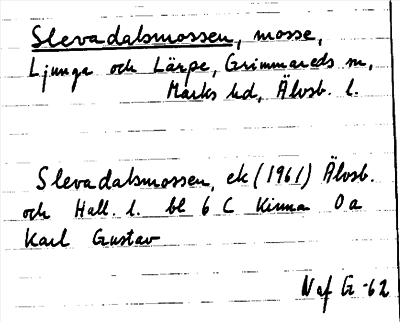 Slevadalsmossen, mosse,
Ljunga och Lärpe, Grimmareds sn,
Marks hd, Älvsb. l.
Slevadalsmossen, ek (1961) Älvsb.
och Hall. l. bl 6 C Kinna Oa
Karl Gustav
N af G -62